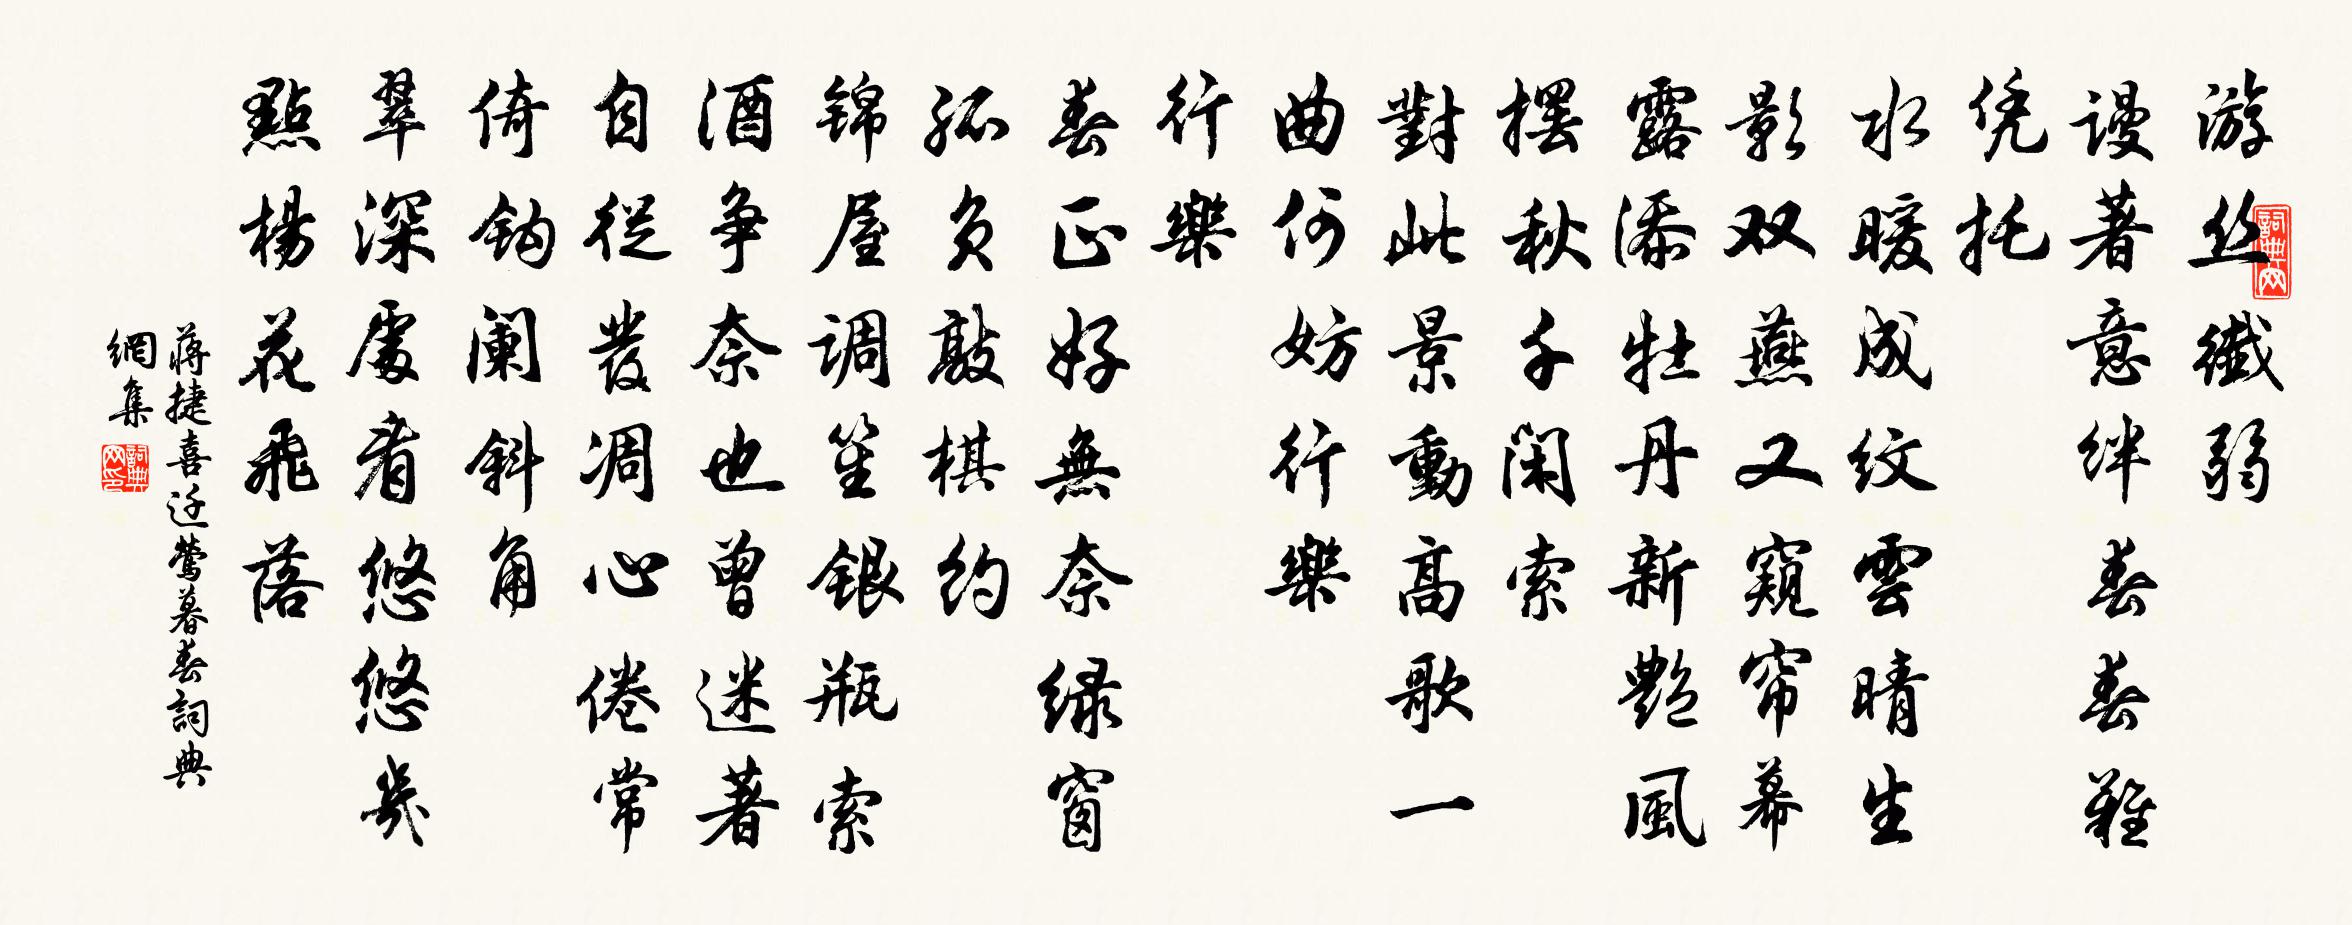 游丝纖弱
謾著意絆春春難
凭托
水暖成紋雲晴生
影双燕又窺帘幕
露添牡丹新艷風
摆秋千閑索
對此景動高歌一
曲何妨行樂
行樂
春正好無奈绿窗
孤负敲棋約
锦屋调笙银瓶索
酒争奈也曾迷著
自從發凋心倦常
倚钩阑斜角
翠深處看悠悠幾
點楊花飛落
蒋捷喜迁莺暮春詞典
網集
詞典网
詞典网印